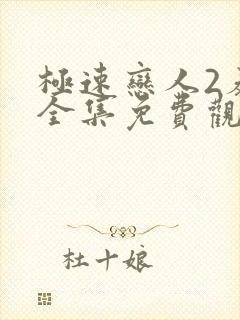 極速戀人2
全集免費觀
杜十娘